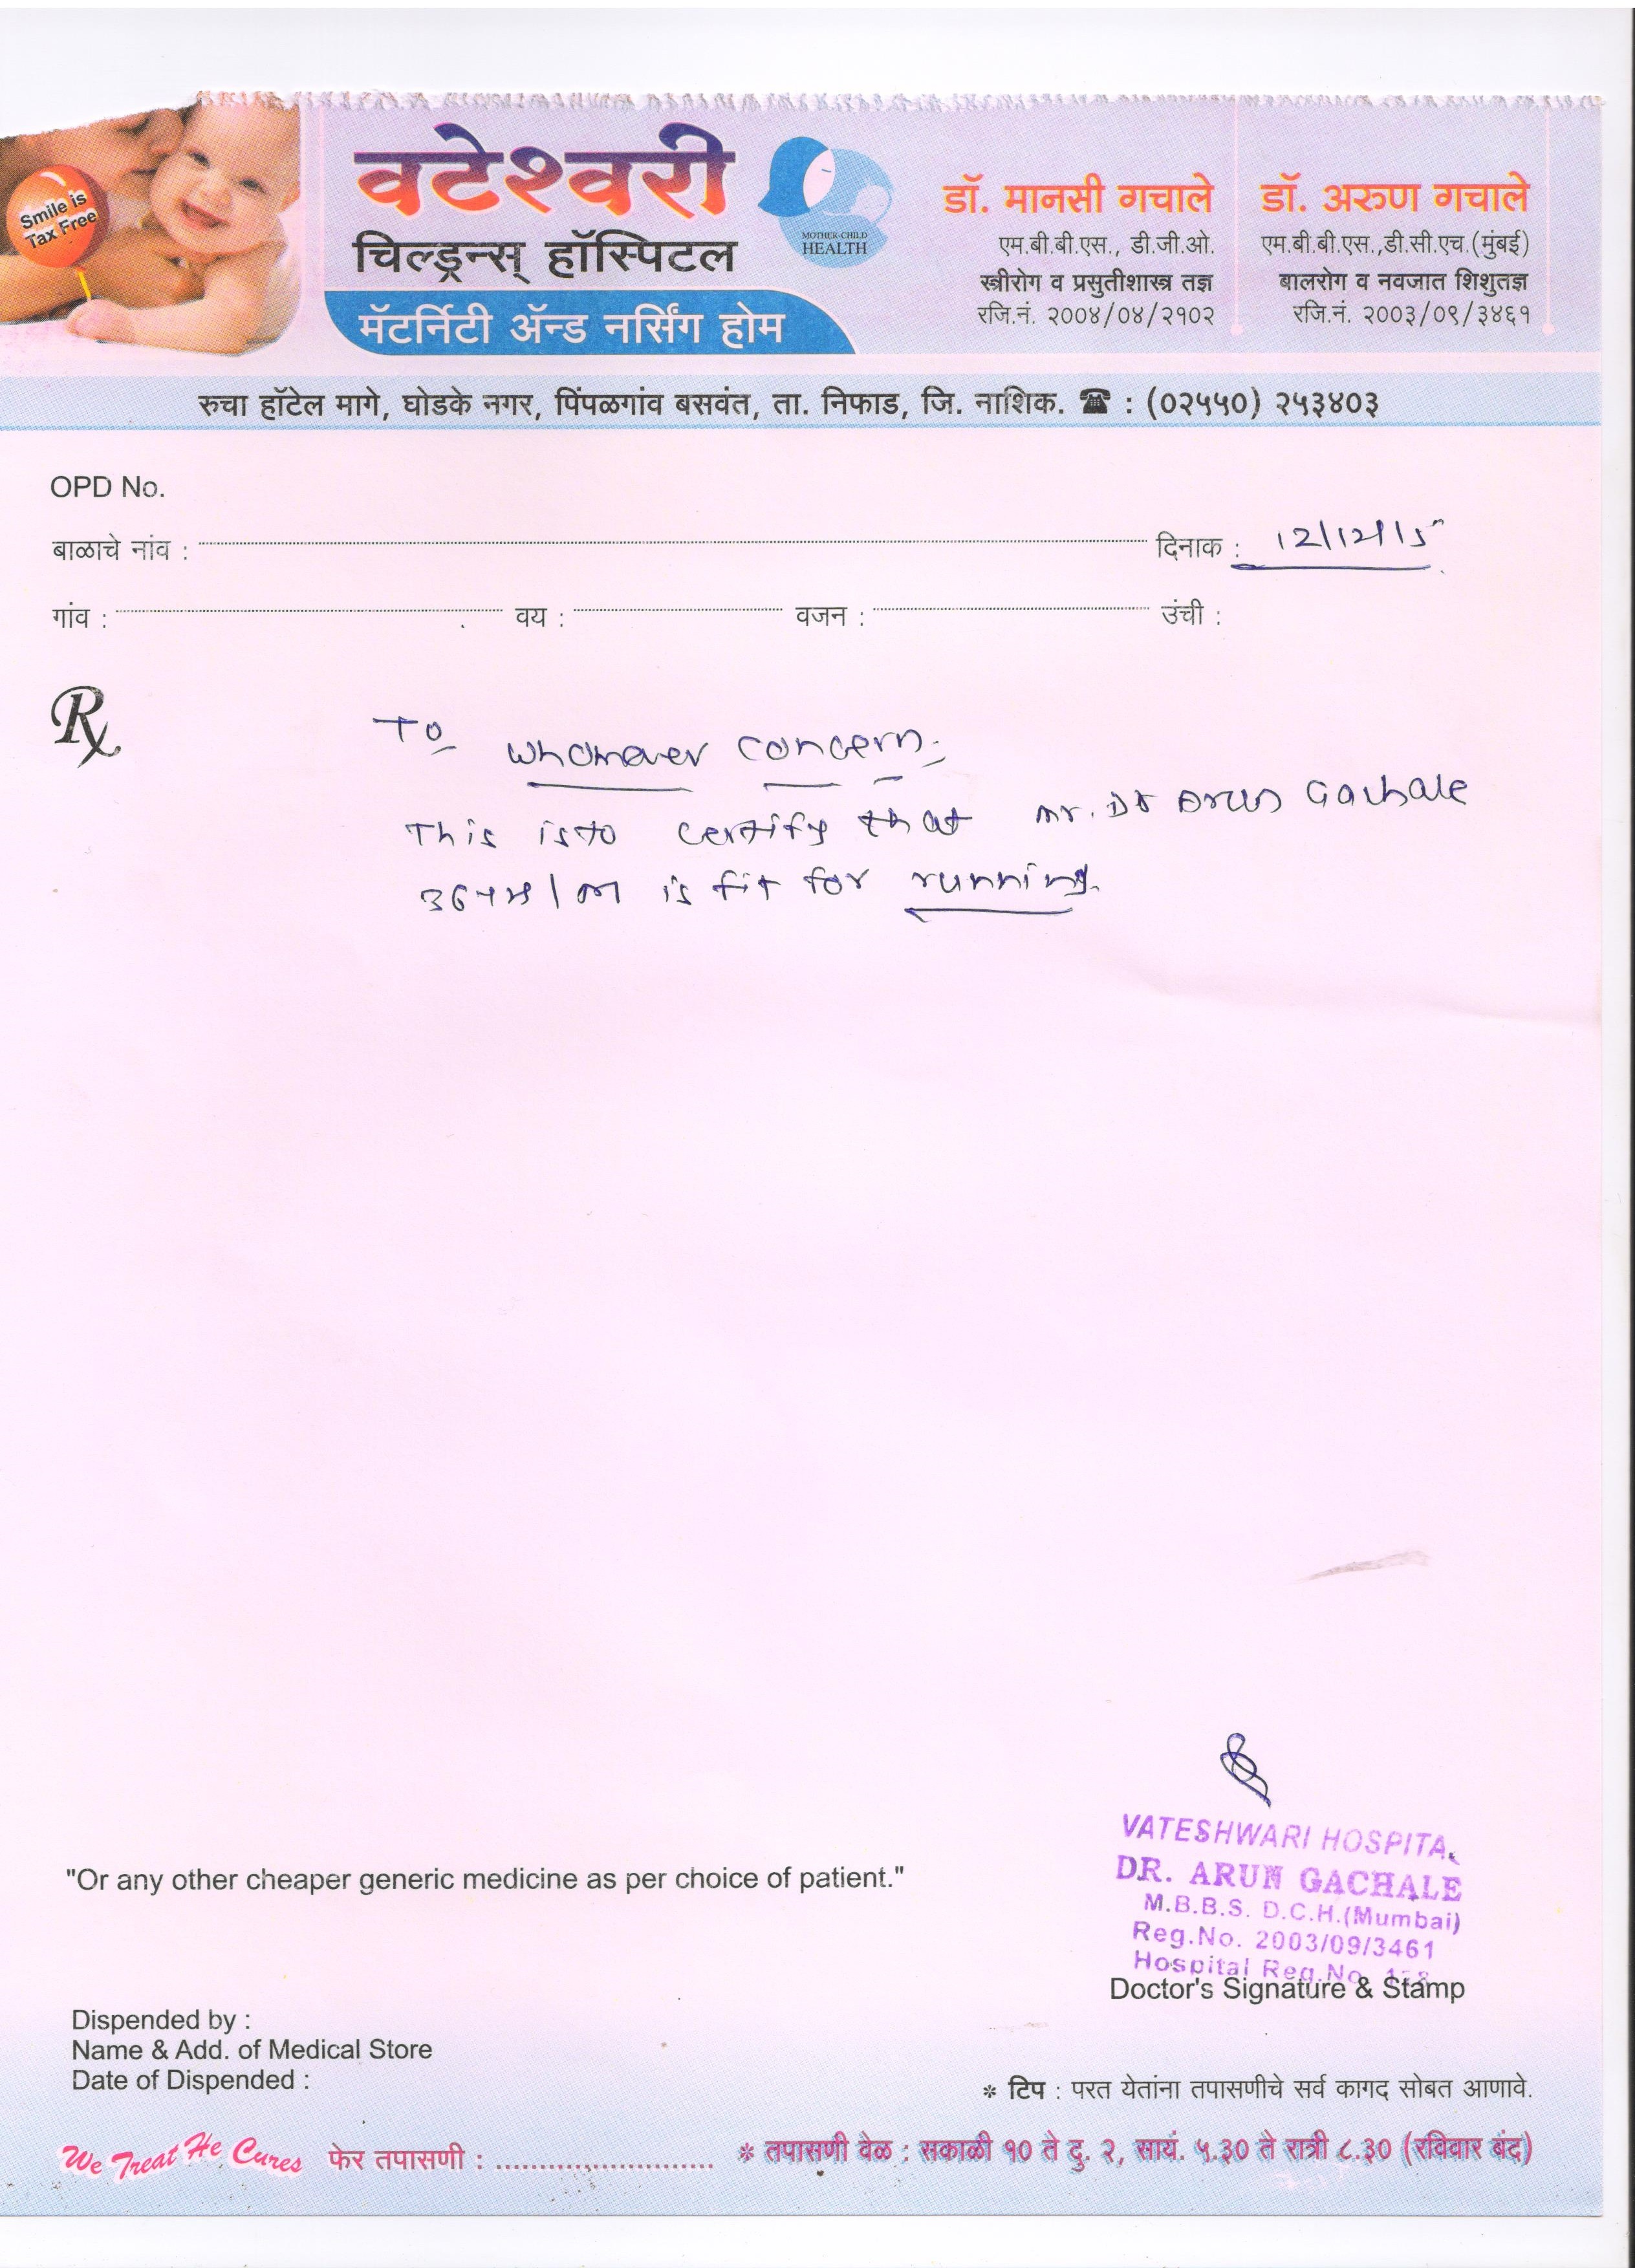 Smile is
Tax Free
वटेश्वरी
चिल्ड्रन्स् हॉस्पिटल
मॅटर्निटी ॲन्ड नर्सिंग होम
MOTHER-CHILD
HEALTH
डॉ. मानसी गचाले
एम.बी.बी.एस., डी.जी.ओ.
स्त्रीरोग व प्रसुतीशास्त्र तज्ञ
रजि.नं. २००४/०४/२१०२
डॉ. अरुण गचाले
एम.बी.बी.एस.,डी.सी.एच.(मुंबई)
बालरोग व नवजात शिशुतज्ञ
रजि.नं. २००३/०९/३४६१
रुचा हॉटेल मागे, घोडके नगर, पिंपळगांव बसवंत, ता. निफाड, जि. नाशिक. ☎ : (०२५५०) २५३४०३
OPD No.
बाळाचे नांव : दिनाक : 12/12/15
गांव : वय : वजन : उंची :
Rx
To
whomever concern.
This is to certify that Mr. Dr Arun Gachale
36yrs/M is fit for running.
VATESHWARI HOSPITA
DR. ARUN GACHALE
M.B.B.S. D.C.H.(Mumbai)
Reg.No. 2003/09/3461
Hospital Reg.No.
Doctor's Signature & Stamp
"Or any other cheaper generic medicine as per choice of patient."
Dispended by :
Name & Add. of Medical Store
Date of Dispended :
* टिप : परत येतांना तपासणीचे सर्व कागद सोबत आणावे.
We Treat He Cures फेर तपासणी : * तपासणी वेळ : सकाळी १० ते दु. २, सायं. ५.३० ते रात्री ८.३० (रविवार बंद)